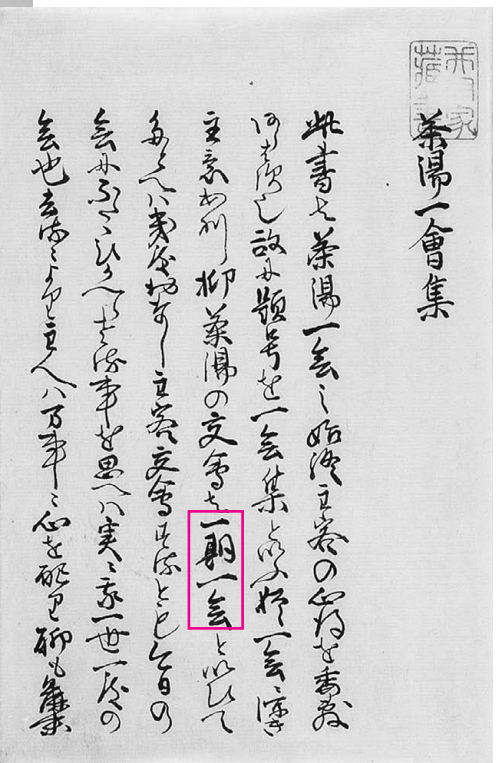 茶湯一會集
此書は茶湯一会之始終主客の心得を委敷
あらはす也故に題号を一会集といふ猶一会ニ深き
主意あり抑茶湯の交會は一期一会といひて
たとへハ幾度おなし主客交會するとも今日の
会にふたゝひかへらさる事を思へハ実ニ我一世一度の
会也去るニより主人ハ万事ニ心を配り聊も麁